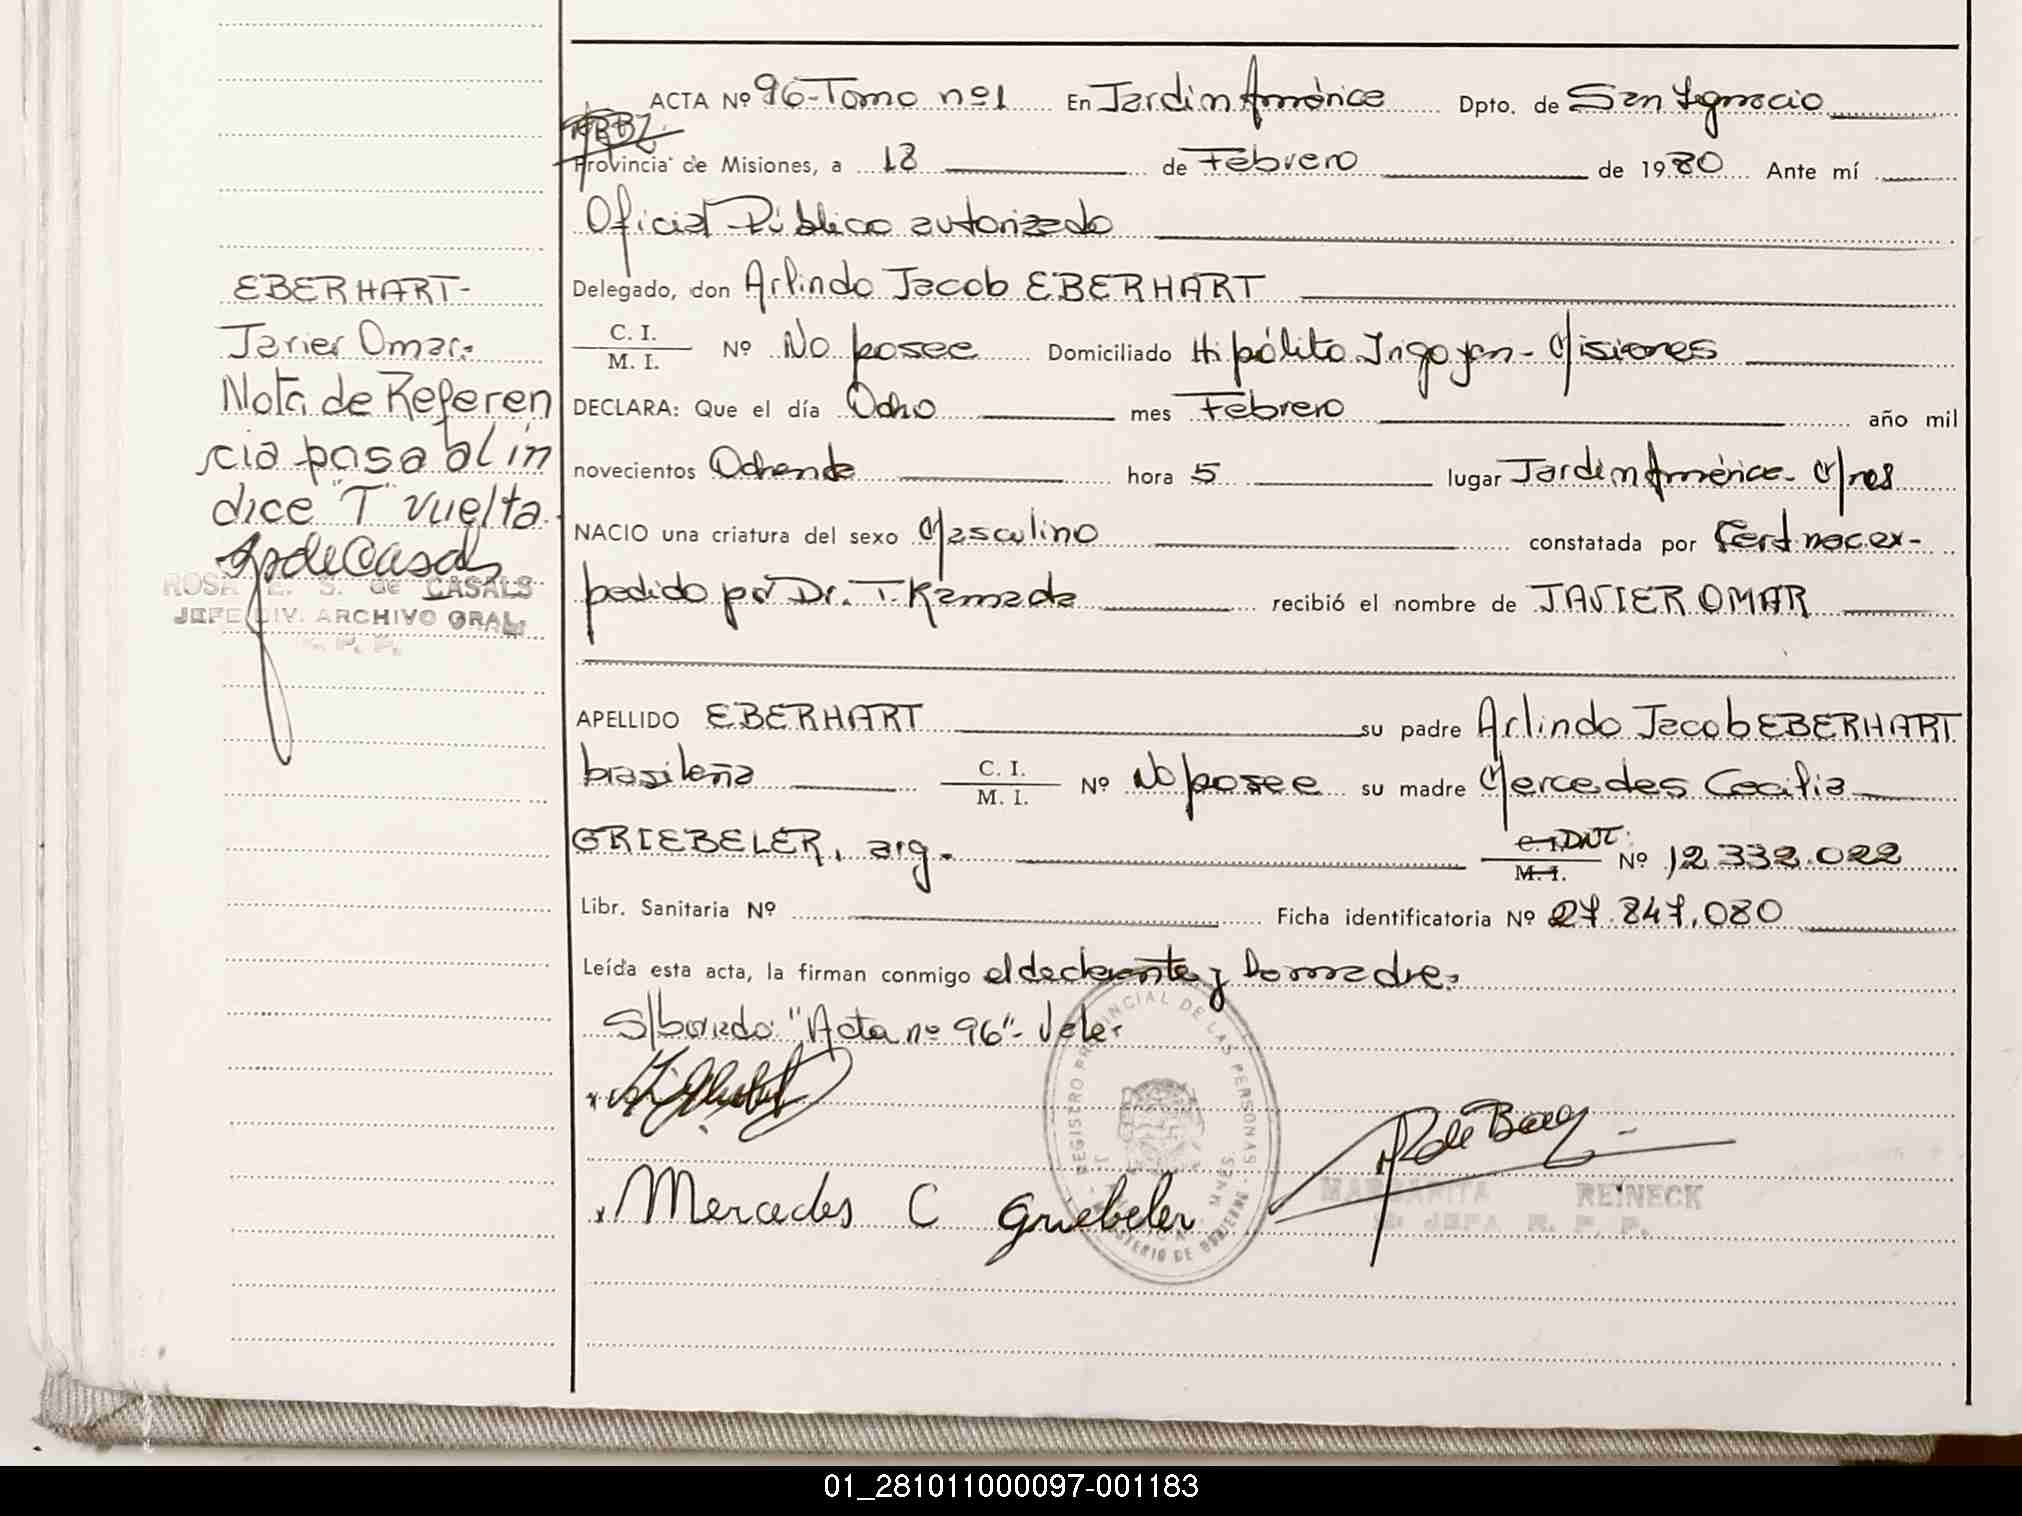 ACTA Nº 96-Tomo nº1 En Jardín América Dpto. de San Ignacio
Provincia de Misiones, a 18 de Febrero de 1980 Ante mí
Oficial Público autorizado
Delegado, don Arlindo Jacob EBERHART
C. I.
M. I. Nº No posee Domiciliado Hipólito Irigoyen - Misiones
DECLARA: Que el día Ocho mes Febrero año mil
novecientos Ochenta hora 5 lugar Jardín América - M/nes
NACIO una criatura del sexo Masculino constatada por Cert nac. ex-
pedido por Dr. T. Kamada recibió el nombre de JAVIER OMAR
APELLIDO EBERHART su padre Arlindo Jacob EBERHART
brasileña C. I.
M. I. Nº No posee su madre Mercedes Cecilia
GRIEBELER, arg. C. I. DNI:
M. I. Nº 12.332.022
Libr. Sanitaria Nº Ficha identificatoria Nº 27.847.080
Leída esta acta, la firman conmigo el declarante y la madre.
S/borrado: "Acta nº 96"- Vale.
Mercedes C Griebeler
REGISTRO PROVINCIAL DE LAS PERSONAS
MINISTERIO DE GOBIERNO
MARGARITA REINECK
JEFA R. P. P.
EBERHART-
Javier Omar.-
Nota de Referen
cia pasa al ín
dice "T" vuelta.
ROSA E. S. de CASALS
JEFE DIV. ARCHIVO GRAL.
R. P. P.
01_281011000097-001183